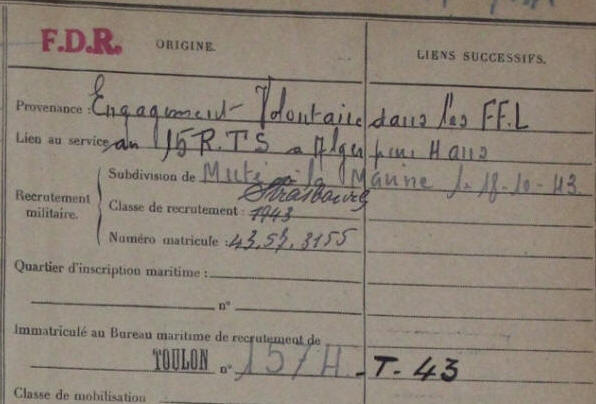 F.D.R. ORIGINE. LIENS SUCCESSIFS.
Provenance : Engagement Volontaire dans les FF.L
Lien au service au 15 R.T.S a Alger pour 4 ans
Subdivision de Muté à la Marine le 18-10-43
Strasbourg
Recrutement militaire. Classe de recrutement : 1943
Numéro matricule : 43.57.3155
Quartier d'inscription maritime :
n°
Immatriculé au Bureau maritime de recrutement de
TOULON n° 15/H - T - 43
Classe de mobilisation